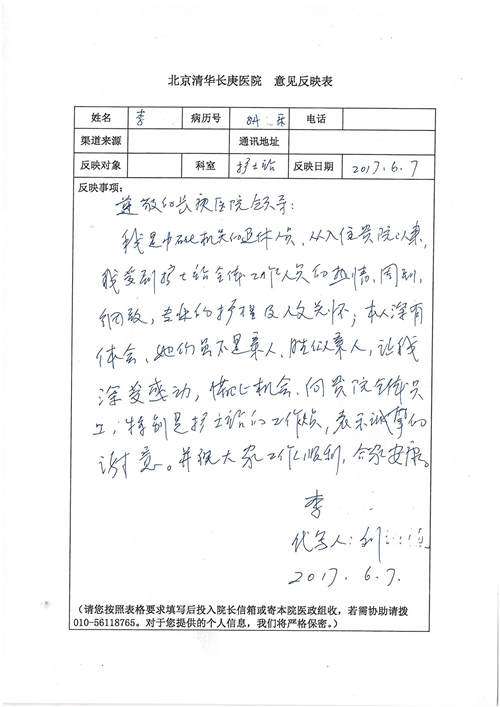 北京清华长庚医院 意见反映表
姓名 李 病历号 84 床 电话
渠道来源 通讯地址
反映对象 科室 护士站 反映日期 2017.6.7
反映事项:
尊敬的长庚医院领导:
我是中础机关的退休人员、从入住贵院以来,
我受到护士站全体工作人员的热情、周到、
细致,专业的护理及人文关怀;本人深有
体会、她们虽不是亲人、胜似亲人,让我
深受感动,借此机会、向贵院全体员
工,特别是护士站的工作人员,表示诚挚的
谢意。并祝大家工作顺利,合家安康。
李
代写人:刘
2017.6.7.
(请您按照表格要求填写后投入院长信箱或寄本院医政组收,若需协助请拨
010-56118765。对于您提供的个人信息,我们将严格保密。)